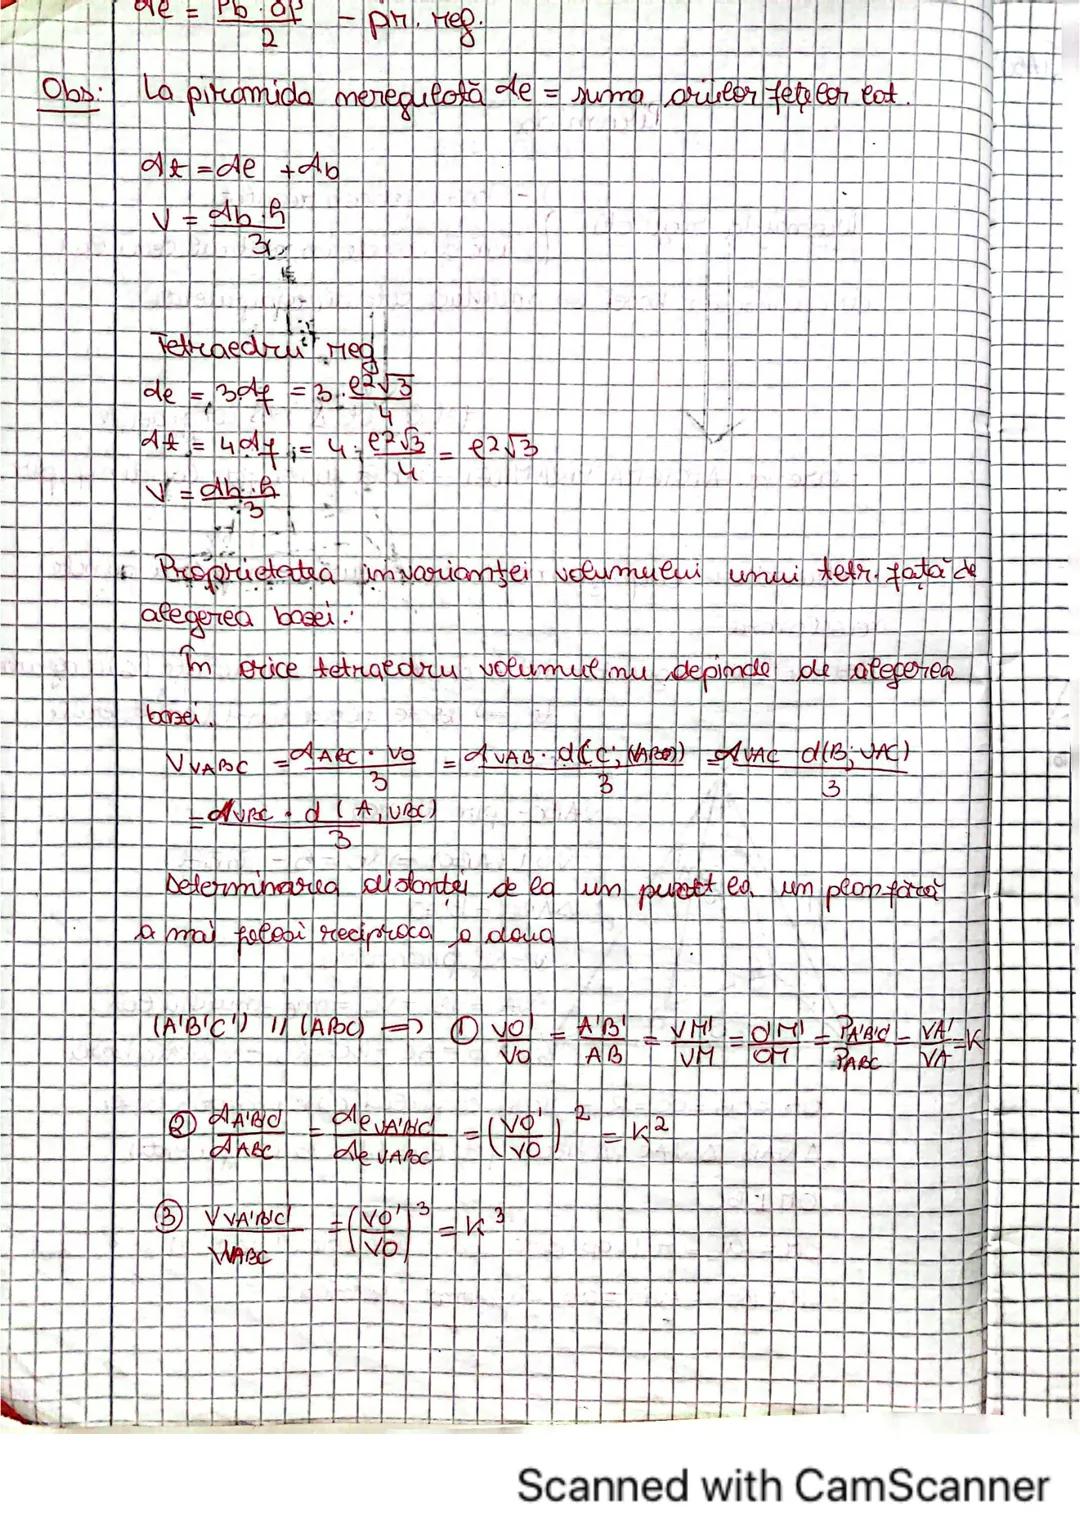 Al = Pb · ap / 2 - pir. reg.
Obs: La piramida neregulată Al = suma ariilor fețelor lat.
At = Al + Ab
V = Ab · h / 3
Tetraedru reg
Al = 3Af = 3 · l²√3 / 4
At = 4Af = 4 · l²√3 / 4 = l²√3
V = Ab · h / 3
Proprietatea invarianței volumului unui tetr. față de
alegerea bazei:
În orice tetraedru volumul nu depinde de alegerea
bazei.
V VABC = A ABC · VO / 3 = A VAB · d(C; (VAB)) / 3 = A VAC d(B; VAC) / 3
= A VBC · d (A, VBC) / 3
Determinarea distanței de la un punct la un plan fără
a mai folosi reciproca a doua
(A'B'C') || (ABC) ⟹ ① VO' / VO = A'B' / AB = VM' / VM = O'M' / OM = P A'B'C' / P ABC = VA' / VA = K
② A A'B'C' / A ABC = Al VA'B'C' / Al VABC = (VO' / VO)² = K²
③ V VA'B'C' / V VABC = (VO' / VO)³ = K³
Scanned with CamScanner